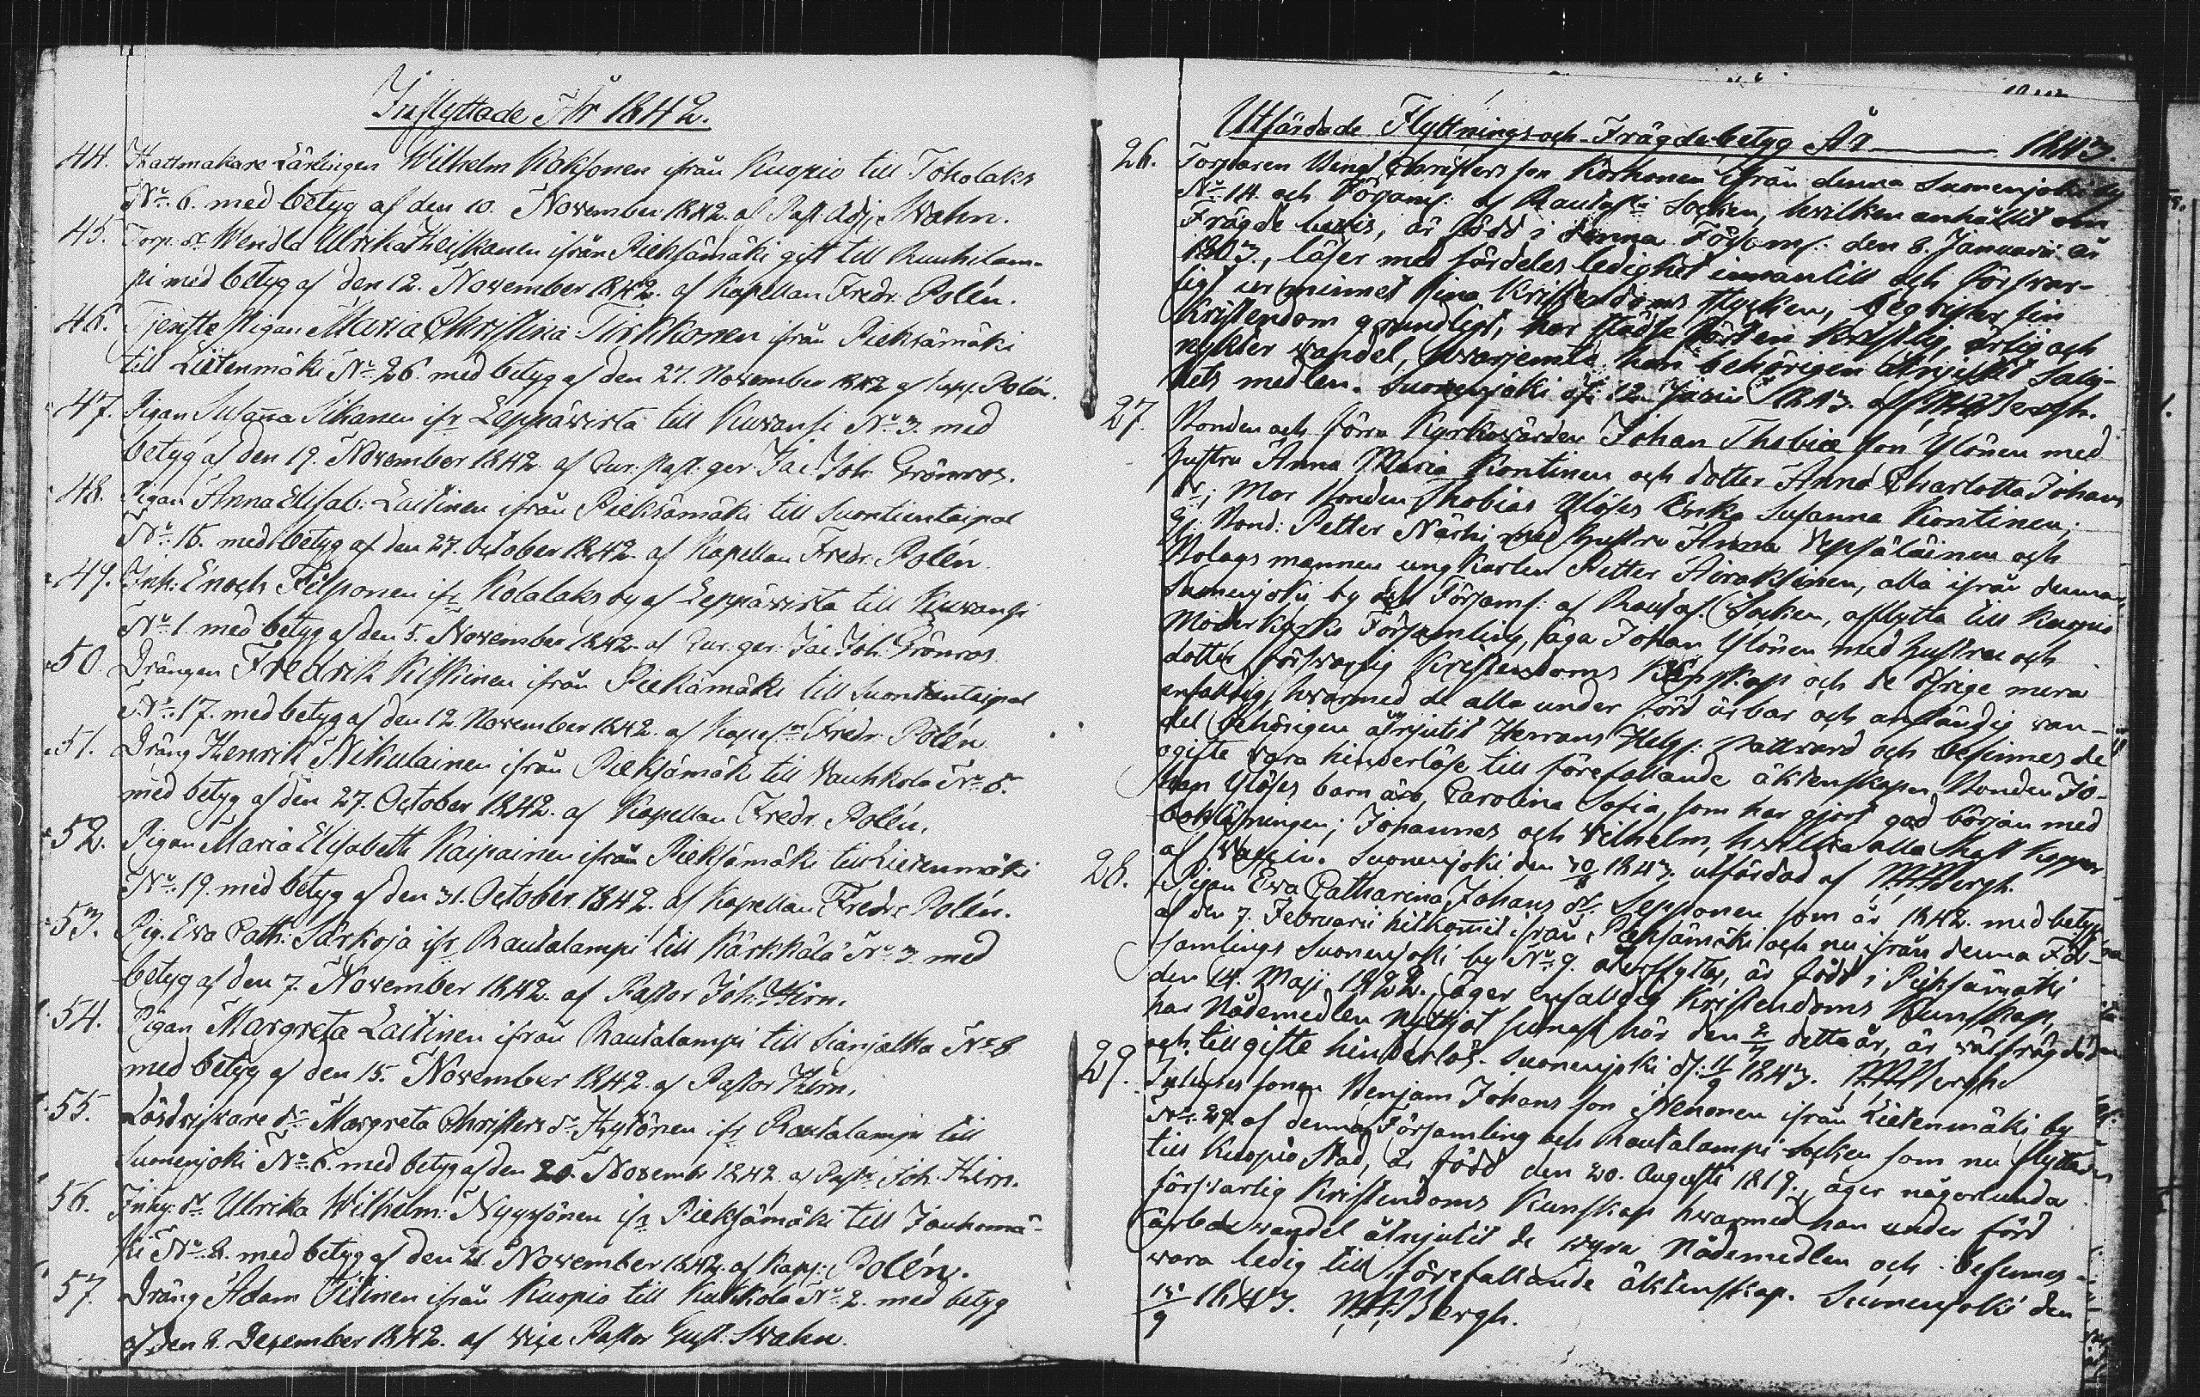 Inflyttade År 1842.
44. Hattmakare Lärlingen Wilhelm Kokkonen ifrån Kuopio till Toholaks
No 6. med betyg af den 10. November 1842. af Past. Adj. Swahn.
45. Torp. dr Wendla Ulrika Heiskanen ifrån Pieksämäki gift till Ruuhilam-
pi med betyg af den 12. November 1842. af Kapellan Fredr. Polén.
46. Tjenste Pigan Maria Christina Tirkkonen ifrån Pieksämäki
till Lietenmäki No 26. med betyg af den 27. November 1842 af Kapp. Polén.
47. Pigan Susanna Sikanen ifr Leppävirta till Kuvansi No 3. med
betyg af den 19. November 1842. af Cur. past. ger. Jac. Joh. Grönroos.
48. Pigan Anna Elisab: Laitinen ifrån Pieksämäki till Suontientaipal
No 16. med betyg af den 27. October 1842. af Kapellan Fredr. Polén.
49. Inh: Enoch Filponen ifr Kolalaks by af Leppävirta till Kuvansi
No 1. med betyg af den 5. November 1842. af Cur. ger. Jac. Joh. Grönros.
50. Drängen Fredrik Kiskinen ifrån Pieksämäki till Suontientaipal
No 17. med betyg af den 12. November 1842. af Kapellan Fredr. Polén
51. Dräng Henrik Nikulainen ifrån Pieksämäki till Vauhkola No 5.
med betyg af den 27. October 1842. af Kapellan Fredr. Polén.
52. Pigan Maria Elisabeth Kaipainen ifrån Pieksämäki till Lietenmäki
No 19. med betyg af den 31. October 1842. af Kapellan Fredr. Polén.
53. Pig. Eva Cath: Särkojä ifr Rautalampi till Kärkkälä No 3. med
betyg af den 7. November 1842. af Pastor Joh. Hirn.
54. Pigan Margreta Laitinen ifrån Rautalampi till Sianjalka No 8
med betyg af den 15. November 1842. af Pastor Hirn.
55. Lösdrifvare dr Margreta Christers dr Hytönen ifr Rautalampi till
Suonenjoki No 6. med betyg af den 20. Novemb. 1842. af Past. Joh. Hirn.
56. Inhy: dr Ulrika Wilhelm: Nyyssönen ifr Pieksämäki till Jauhomä-
ki No 8. med betyg af den 21. November 1842. af Kapp: Polén.
57. Dräng Adam Titinen ifrån Kuopio till Kukkola No 2. med betyg
af den 8. December 1842. af vice Pastor Gust. Swahn.
Utfärdade Flyttnings och Frägde-betyg År 1843.
26. Torparen Bengt Christers son Korhonen ifrån denna Suonenjoki by
No 14. och Församl. af Rautal:i Socken, hvilken anhållit om
Frägde bevis, är född i denna Församl. den 8. Januarii år
1803, läser med färdeles ledighet innantill och försvar-
ligt ur minnet sina Kristendoms stycken, begriper sin
Kristendom grundligt, har städse fört en Kristlig, ärlig och
nykter vandel, hvarjemte han behörigen åtnjutit Salig-
hets medlen. Suonenjoki af 12 Junii 1843. af Bergh.
27. Bonden och förra Kyrkovärden Johan Thobiæ son Ylönen med
hustru Anna Maria Kontinen och dotter Anna Charlotta Johans
dr; Mor Bonden Thobias Ylöses Enka Susanna Kontinen;
Bond: Petter Närhi med hustru Anna Vepsäläinen och
Bolags mannen ung karlen Petter Airaksinen, alla ifrån denna
Suonenjoki by och Församl: af Rautal. Socken, afflytta till Kuopio
Moderkyrko Församling, äga Johan Ylönen med hustru och
dotter försvarlig Kristendoms Kunskap och de öfrige mera
enfaldig, hvarmed de alla under förd ärbar och anständig van-
del behörigen åtnjutit Herrans Helg: Nattvard och befinnes de
ogifte vara hinderlöse till förefallande äktenskap. Bonden Jo-
han Ylöses barn äro Carolina Sofia, som har gjort god början med
bokläsningen; Johannes och Wilhelm, hvilka alla haft koppor
af Vaccin. Suonenjoki den 1843. utfärdad af Bergh.
28. Pigan Eva Catharina Johans dr Sepponen som år 1842. med betyg
af den 7. Februarii hitkommit ifrån Pieksämäki och nu ifrån denna För-
samlings Suonenjoki by No 9. återflyttar, är född i Pieksämäki
den 14. Maji 1822. äger enfaldig Kristendoms Kunskap,
har Nådemedlen nyttjat senast här den detta år, är välfrägdad
och till gifte hinderlös. Suonenjoki d. 11/9 1843. Bergh
29. Inhyses sonen Benjam Johans son Nenonen ifrån Lietenmäki by
No 29. af denna Församling och Rautalampi Socken som nu flyttar
till Kuopio Stad, är född den 20. Augusti 1819., äger någorlunda
försvarlig Kristendoms Kunskap hvarmed han under förd
ärbar vandel åtnjutit de dyra Nådemedlen och befinnes
vara ledig till förefallande äktenskap. Suonenjoki den
15/9 1843. Bergh.